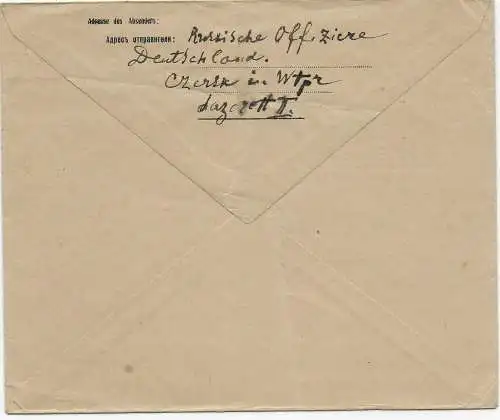 Adresse des Absenders:
Адресъ отправителя: Russische Offiziere
Deutschland.
Czersk in Wtpr
Lazerett II.